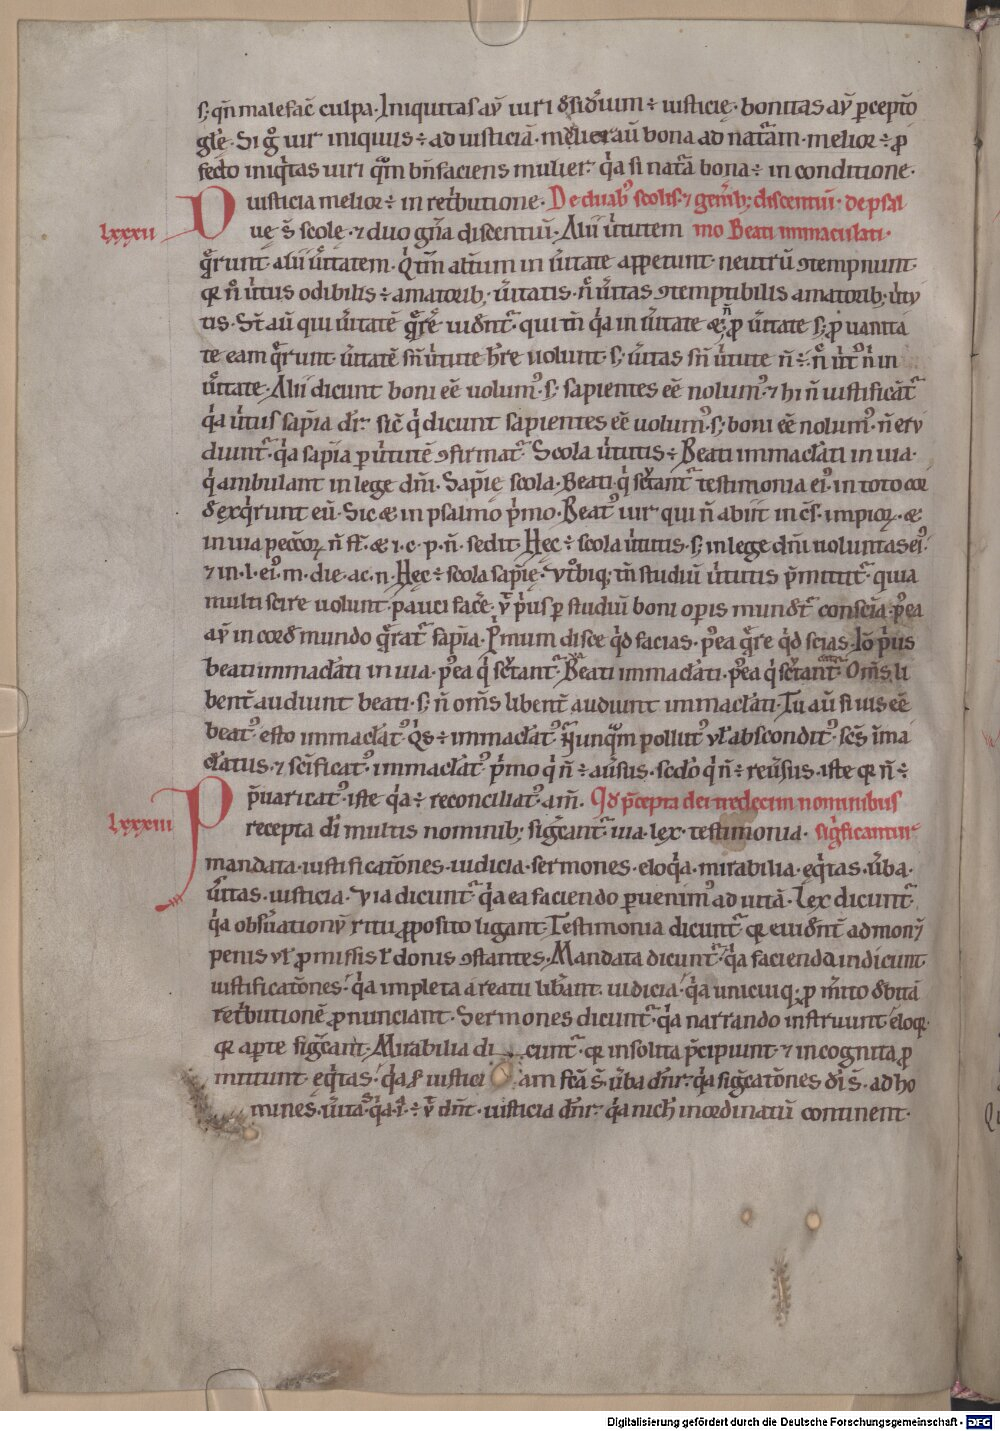 s; qn̄ malefac̄ culpa. Iniquitas aū uiri dsidium ÷ iusticię. bonitas aū ꝑcepto
glę. Si gͦ uir iniquus ÷ ad iusticiā. mulier aū bona ad natam. melior ÷ ꝓ
fecto iniqͥtas uiri qm̄ bn̄faciens mulier. qͥa si natā bona ÷ in conditione.
iusticia melior ÷ in retͥbutione. De duabꝰ scolis. ⁊ geneͥb; discentiū. de psal
lxxxii D uę s̄ scole. ⁊ duo gn̄a discentiū. Alii uͥtutem mo Beati immaculati.
qͣrunt. alii uͥtatem. Qͥ tn̄ altͥum in uͥtate appetunt. neutrū ꝯtempnunt.
qͥ nͦ uͥtus odibilis ÷ amatorib; uͥtatis. nͦ uͥtas ꝯtemptibilis amatorib; uͥtu
tis. St̄ aū qui uͥtatē qͣrē uidn̄t. qui tn̄ qͥa in uͥtate & n̄ ꝓ uͥtate s; ꝓ uanita
te eam qͣrunt. uͥtatē sn̄ uͥtute hr̄e uolunt. s; uͥtas sn̄ uͥtute n̄ ÷. nͦ uͥtꝰ n̄ in
uͥtate. Alii dicunt boni eē uolumꝰ. s; sapientes eē nolumꝰ. ⁊ hi n̄ iustificāt
qͥa uͥtus sapīa dr̄. sic̄ qͥ dicunt sapientes eē uolumꝰ. s; boni eē nolumꝰ. n̄ eru
diunt. qͥa sapīa ꝑ uͥtutē ꝯfirmat. Scola uͥtutis ÷ Beati immaclāti in uia.
qͥ ambulant in lege dn̄i. Sapīę scola. Beati qͥ scͥtant testimonia eiꝰ. in toto cor
d exqͥrunt eū. Sic & in psalmo pͥmo. Beatꝰ uir qui n̄ abiit in c̄s. impioꝝ. &
in uia peccoꝝ n̄ st̄. & i. c. p. n̄. sedit. Hęc ÷ scola uͥtutis. s; in lege dn̄i uoluntas eiꝰ.
⁊ in. l. eiꝰ. m. die. ac. n. Hęc ÷ scola sapīę. Utͦbiq; tn̄ studiū uͥtutis pͣmittit. quia
multi scire uolunt. pauci facͥe. uͦ pͥus ꝑ studiū boni operis mundt conscīa. pͦea
aū in cord mundo qͣrat sapīa. Pͥmum disce qͥd facias. pͦea qͣre qͥd scias. Iō pͥus
beati immaclāti in uia. pͦea qͥ scͥtant. Beati immaclāti. pͦea qͥ scͥtant. Om̄s li
bent̄ audiunt beati. s; n̄ om̄s libent̄ audiunt immaclāti. Tu aū si uis eē
beatꝰ. esto immaclātꝰ. Qͥs ÷ immaclātꝰ. qͥ nunqͣm pollutꝰ ul̄ absconditꝰ. scs̄ īma
clatus. ⁊ scīficatꝰ. immaclātꝰ. pͥmo qͥ n̄ ÷ auͥsus. sedo qͥ n̄ ÷ reuͥsus. iste qͥ n̄ ÷
pͣuaricatꝰ. iste qͥa ÷ reconciliatꝰ. am̄. Qd pͣcepta dei tredecim nominibus
lxxxiii P recepta dī multis nominib; siḡcant. uia. lex. testimonia. siḡficantur
mandata. iustificatōnes. iudicia. sermones. eloqͥa. mirabilia. eqͥtas. uͥba.
uͥtas. iusticia. Via dicunt. qͥa ea faciendo ꝑuenimꝰ ad uitā. Lex dicunt.
qͥa obsͥuationū ritu ꝓposito ligant. Testimonia dicunt. qͥ euidn̄t admonͥ
penis ul̄ ꝓmissis ul̄ donis ꝯstantes. Mandata dicunt. qͥa facienda indicunt
iustificatōnes. qͥa impleta a reatu libͥant. iudicia. qͥa unicuiq; ꝓ mͥito dbitā
retͥbutionē ꝓnunciant. Sermones dicunt. qͥa narrando instruunt. eloqͥ.
qͥ aꝑte siḡcant. Mirabilia di cunt. qͥ insolita pͣcipiunt. ⁊ incognita ꝓ
mittunt. eqͥtas. qͥa iustici am fcā s̄. uͥba dnr̄. qͥa siḡcatōnes dī s̄. ad ho
mines. uͥtas. qͥa ÷ uͦ dn̄t. iusticia dnr̄. qͥa nichͥ inordinatū continent.
Digitalisierung gefördert durch die Deutsche Forschungsgemeinschaft - DFG